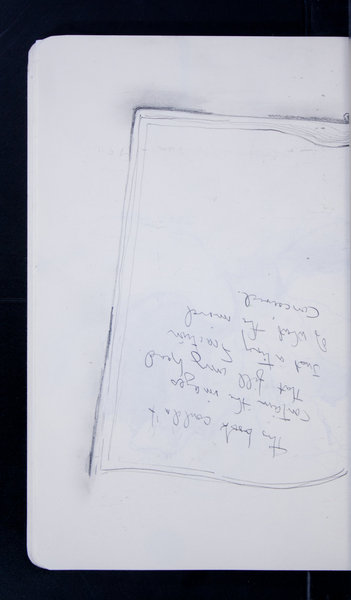 the book couldn't
contain the images
That fill my head
Just a tiny fraction
Is what the mind
Conceived.